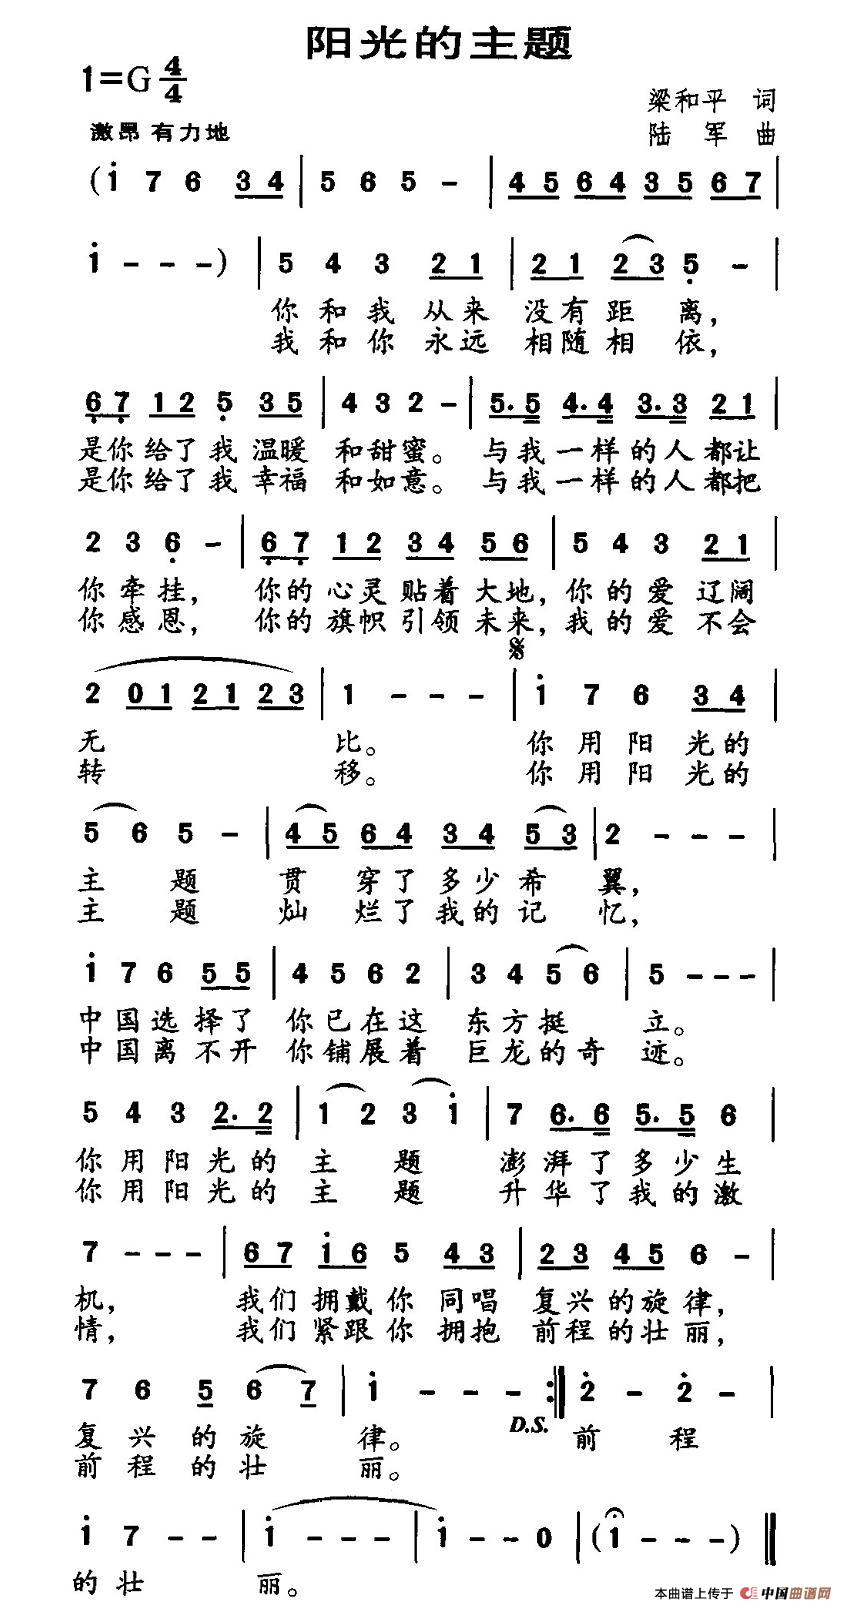 阳光的主题
1=G 4/4
梁和平 词
激昂 有力地
陆 军 曲
(i 7 6 3 4 | 5 6 5 - | 4 5 6 4 3 5 6 7 |
i - - -) | 5 4 3 2 1 | 2 1 2 3 5 - |
你和我从来没有距离,
我和你永远相随相依,
6 7 1 2 5 3 5 | 4 3 2 - | 5. 5 4. 4 3. 3 2 1 |
是你给了我温暖 和甜蜜。 与我一样的人都让
是你给了我幸福 和如意。 与我一样的人都把
2 3 6 - | 6 7 1 2 3 4 5 6 | 5 4 3 2 1 |
你牵挂, 你的心灵贴着大地, 你的爱辽阔
你感恩, 你的旗帜引领未来, 我的爱不会
2 0 1 2 1 2 3 | 1 - - - | i 7 6 3 4 |
无 比。 你用阳光的
转 移。 你用阳光的
5 6 5 - | 4 5 6 4 3 4 5 3 | 2 - - - |
主 题 贯 穿了多少希翼,
主 题 灿 烂了我的记忆,
i 7 6 5 5 | 4 5 6 2 | 3 4 5 6 | 5 - - - |
中国选择了 你已在这 东方挺 立。
中国离不开 你铺展着 巨龙的奇 迹。
5 4 3 2. 2 | 1 2 3 i | 7 6. 6 5. 5 6 |
你用阳光的 主 题 澎湃了多少生
你用阳光的 主 题 升华了我的激
7 - - - | 6 7 i 6 5 4 3 | 2 3 4 5 6 - |
机, 我们拥戴你同唱 复兴的旋律,
情, 我们紧跟你拥抱 前程的壮丽,
7 6 5 6 7 | i - - - :| 2 - 2 -
D.S.
复兴的旋 律。 前 程
前程的壮 丽。
i 7 - - | i - - - | i - - 0 | (i - - -) ||
的壮 丽。
本曲谱上传于 中国曲谱网